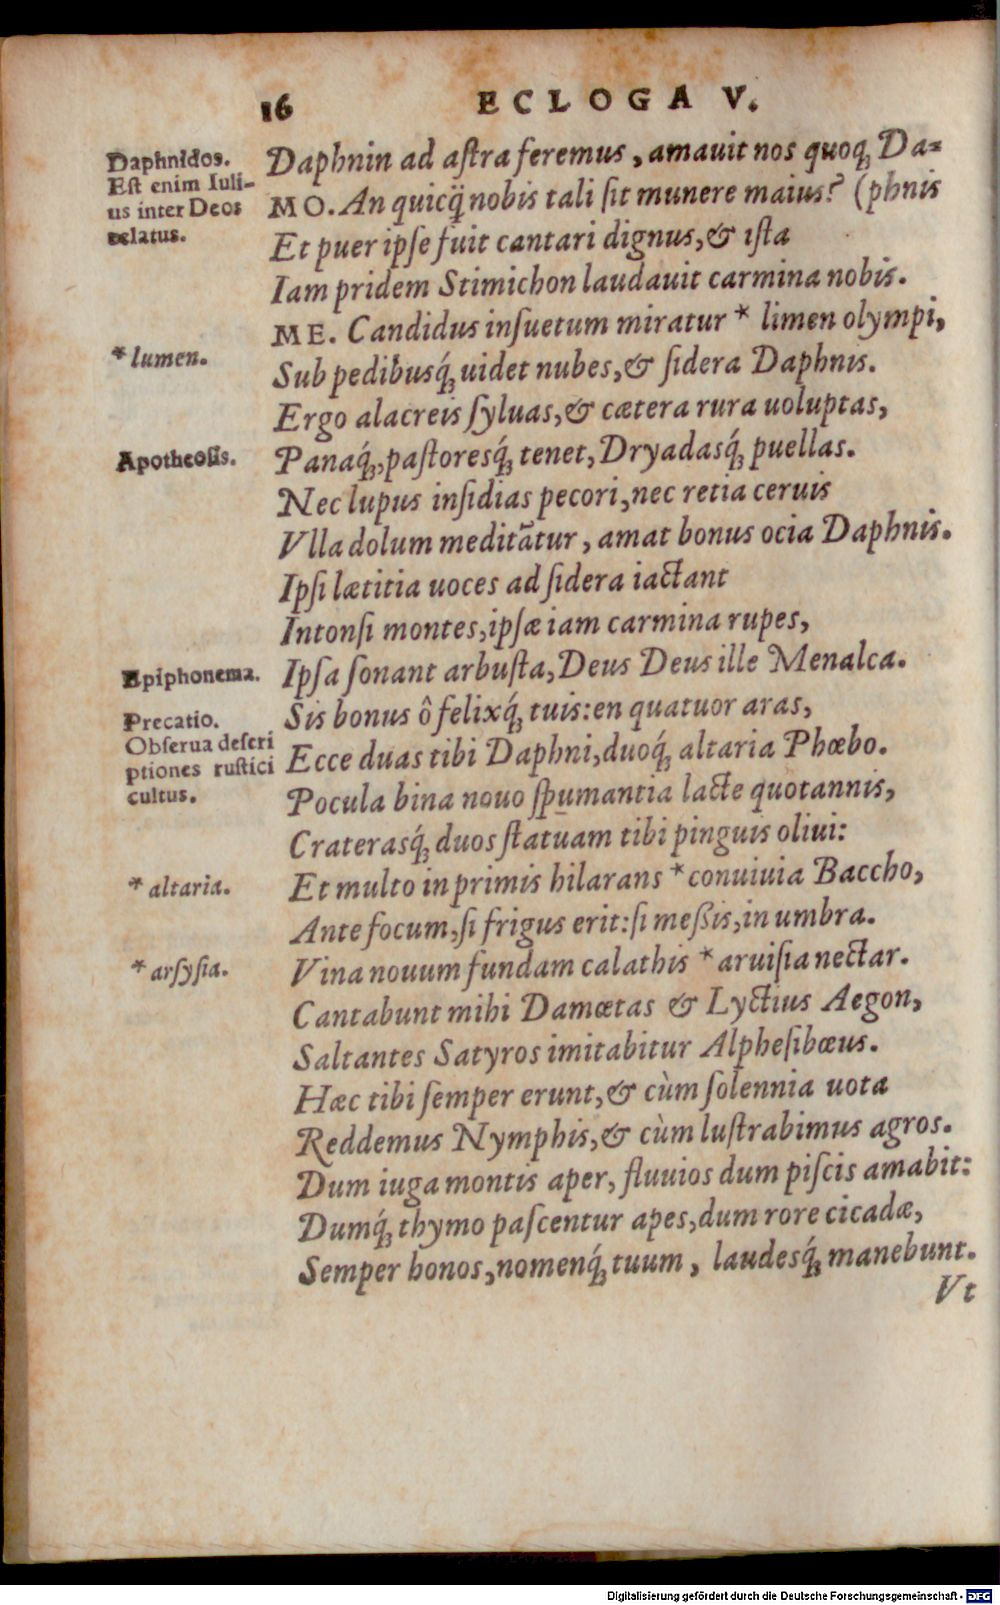 16 ECLOGA V.
Daphnidos.
Est enim Iuli-
us inter Deos
relatus.
Daphnin ad aſtra feremus, amauit nos quoqꝫ Da-
MO. An quicq̃ nobis tali ſit munere maius? (phnis
Et puer ipſe fuit cantari dignus, & iſta
Iam pridem Stimichon laudauit carmina nobis.
ME. Candidus inſuetum miratur * limen olympi,
* lumen.
Sub pedibusq́ꝫ uidet nubes, & ſidera Daphnis.
Ergo alacreis ſyluas, & cætera rura uoluptas,
Apotheoſis.
Panaq́ꝫ, paſtoresq́ꝫ tenet, Dryadasq́ꝫ puellas.
Nec lupus inſidias pecori, nec retia ceruis
Vlla dolum meditãtur, amat bonus ocia Daphnis.
Ipſi lætitia uoces ad ſidera iactant
Intonſi montes, ipſæ iam carmina rupes,
Epiphonema.
Ipſa ſonant arbuſta, Deus Deus ille Menalca.
Precatio.
Obſerua deſcri
ptiones ruſtici
cultus.
Sis bonus ô felixq́ꝫ tuis: en quatuor aras,
Ecce duas tibi Daphni, duoq́ꝫ altaria Phœbo.
Pocula bina nouo ſpumantia lacte quotannis,
Craterasq́ꝫ duos ſtatuam tibi pinguis oliui:
* altaria.
Et multo in primis hilarans * conuiuia Baccho,
Ante focum, ſi frigus erit: ſi meßis, in umbra.
* arſyſia.
Vina nouum fundam calathis * aruiſia nectar.
Cantabunt mihi Damœtas & Lyctius Aegon,
Saltantes Satyros imitabitur Alpheſibœus.
Hæc tibi ſemper erunt, & cùm ſolennia uota
Reddemus Nymphis, & cùm luſtrabimus agros.
Dum iuga montis aper, fluuios dum piſcis amabit:
Dumq́ꝫ thymo paſcentur apes, dum rore cicadæ,
Semper honos, nomenq́ꝫ tuum, laudesq́ꝫ manebunt.
Vt
Digitalisierung gefördert durch die Deutsche Forschungsgemeinschaft - DFG